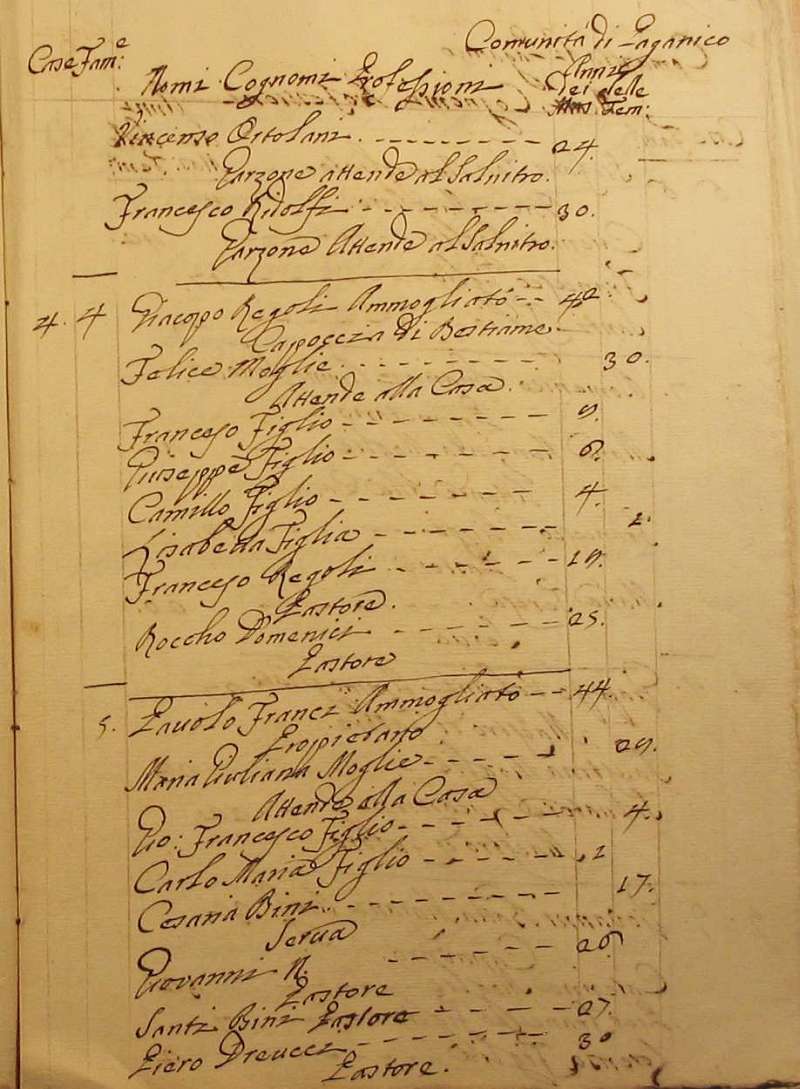 Comunità di Paganico
Case Fam:e
Nomi Cognomi Professioni Anni dei Mas. delle Fem:
Vincenso Ortolani 24.
Garzone attende al Salnitro.
Francesco Ridolfi 30.
Garzone Attende al Salnitro.
4. 4 Giacopo Regoli Ammogliato 42
Cappoccia di Bestiame
Felice Moglie 30.
Attende alla Casa.
Francesо Figlio 9.
Giuseppe Figlio 6.
Camillo Figlio 4.
Lisabetta Figlia 2.
Franceso Regoli 19.
Pastore.
Roccho Domenici 25.
Pastore
5. Pavolo Franci Ammogliato 44.
Maria Giuliana Moglie 29.
Attende alla Casa
Gio: Francesco Figlio 4.
Carlo Maria Figlio 2
Cesaria Bini 17.
Serva
Giovanni N. 26
Pastore
Santi Bini Pastore 27.
Piero Dreucci 30
Pastore.